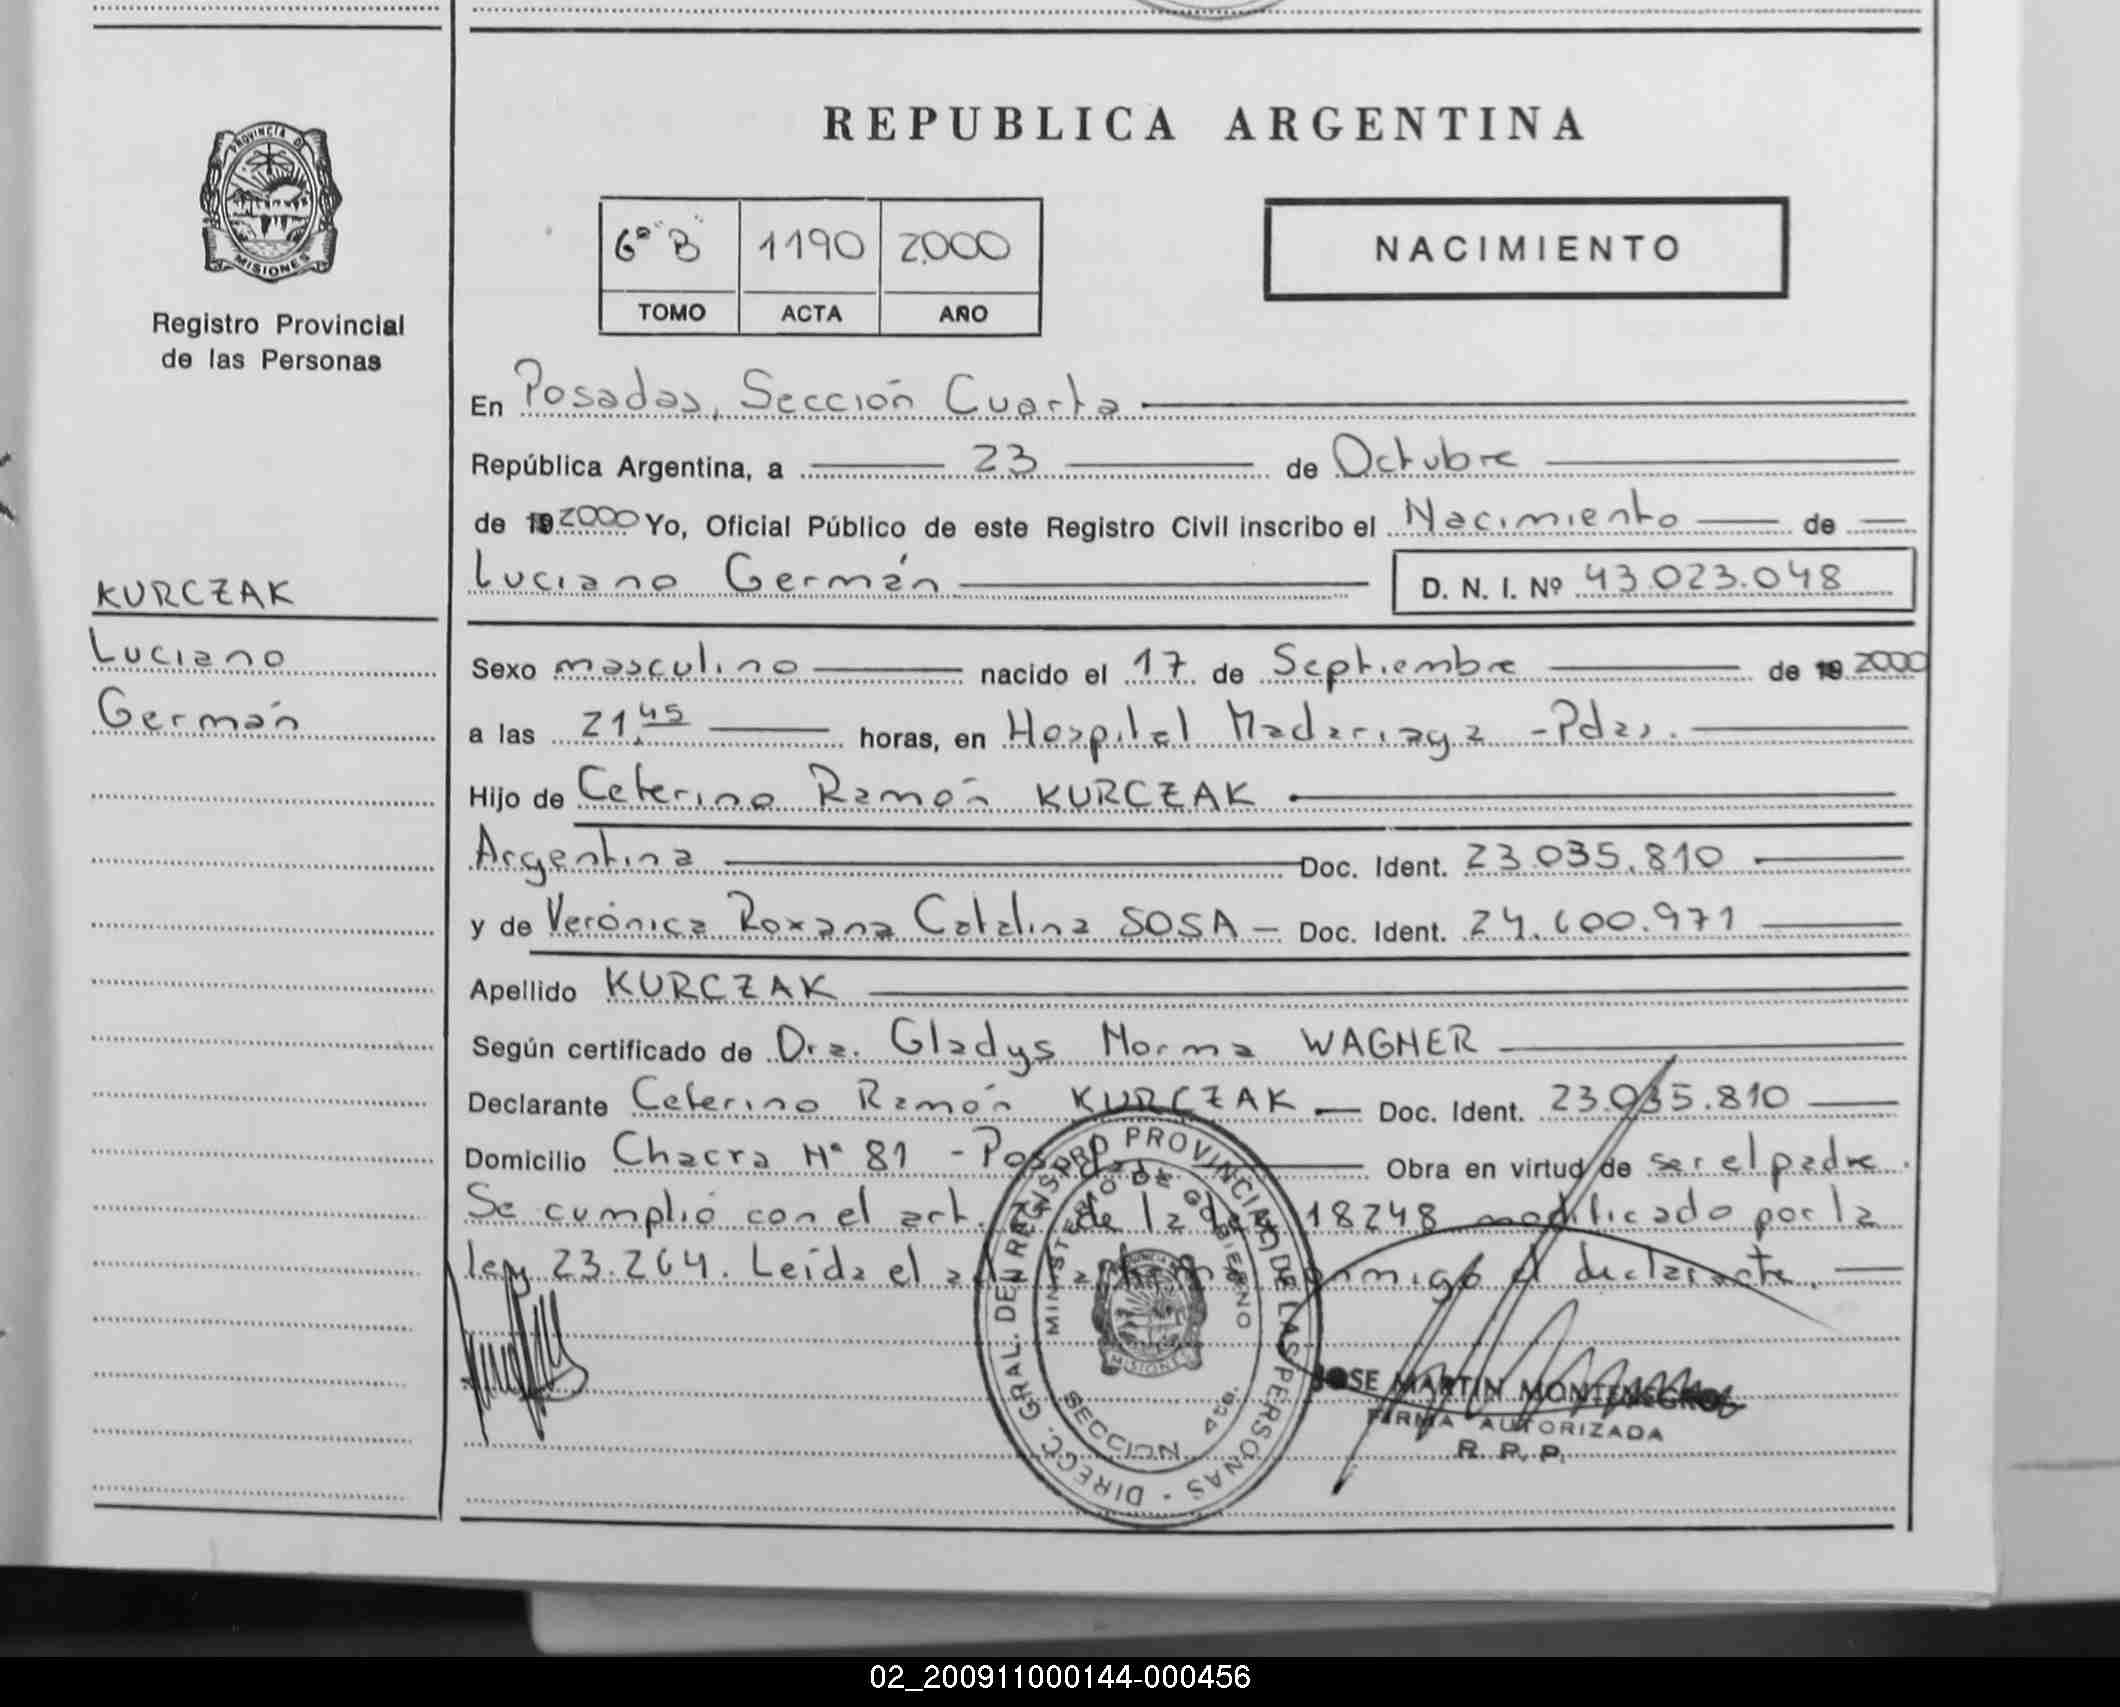 REPUBLICA ARGENTINA
PROVINCIA D
MISIONES
Registro Provincial
de las Personas
6º "B" 1190 2000
TOMO ACTA AÑO
NACIMIENTO
En Posadas, Sección Cuarta
República Argentina, a 23 de Octubre
de 19 2000 Yo, Oficial Público de este Registro Civil inscribo el Nacimiento de
Luciano Germán D. N. I. Nº 43.023.048
KURCZAK
Luciano
Germán
Sexo masculino nacido el 17 de Septiembre de 19 2000
a las 21.45 horas, en Hospital Madariaga - Pdas.
Hijo de Ceferino Ramón KURCZAK
Argentina Doc. Ident. 23.035.810
y de Verónica Roxana Catalina SOSA - Doc. Ident. 24.600.971
Apellido KURCZAK
Según certificado de Dra. Gladys Norma WAGNER
Declarante Ceferino Ramón KURCZAK - Doc. Ident. 23.035.810
Domicilio Chacra Nº 81 - Posadas Obra en virtud de ser el padre.
Se cumplió con el art. de la ley 18248 modificado por la
ley 23.264. Leída el acta conmigo el declarante.
DIRECC. GRAL. DEL REGISTRO PROVINCIAL DE LAS PERSONAS
MINISTERIO DE GOBIERNO
MISIONES
SECCION 4ta.
JOSE MARTIN MONTENEGRO
FIRMA AUTORIZADA
R. P. P.
02_200911000144-000456